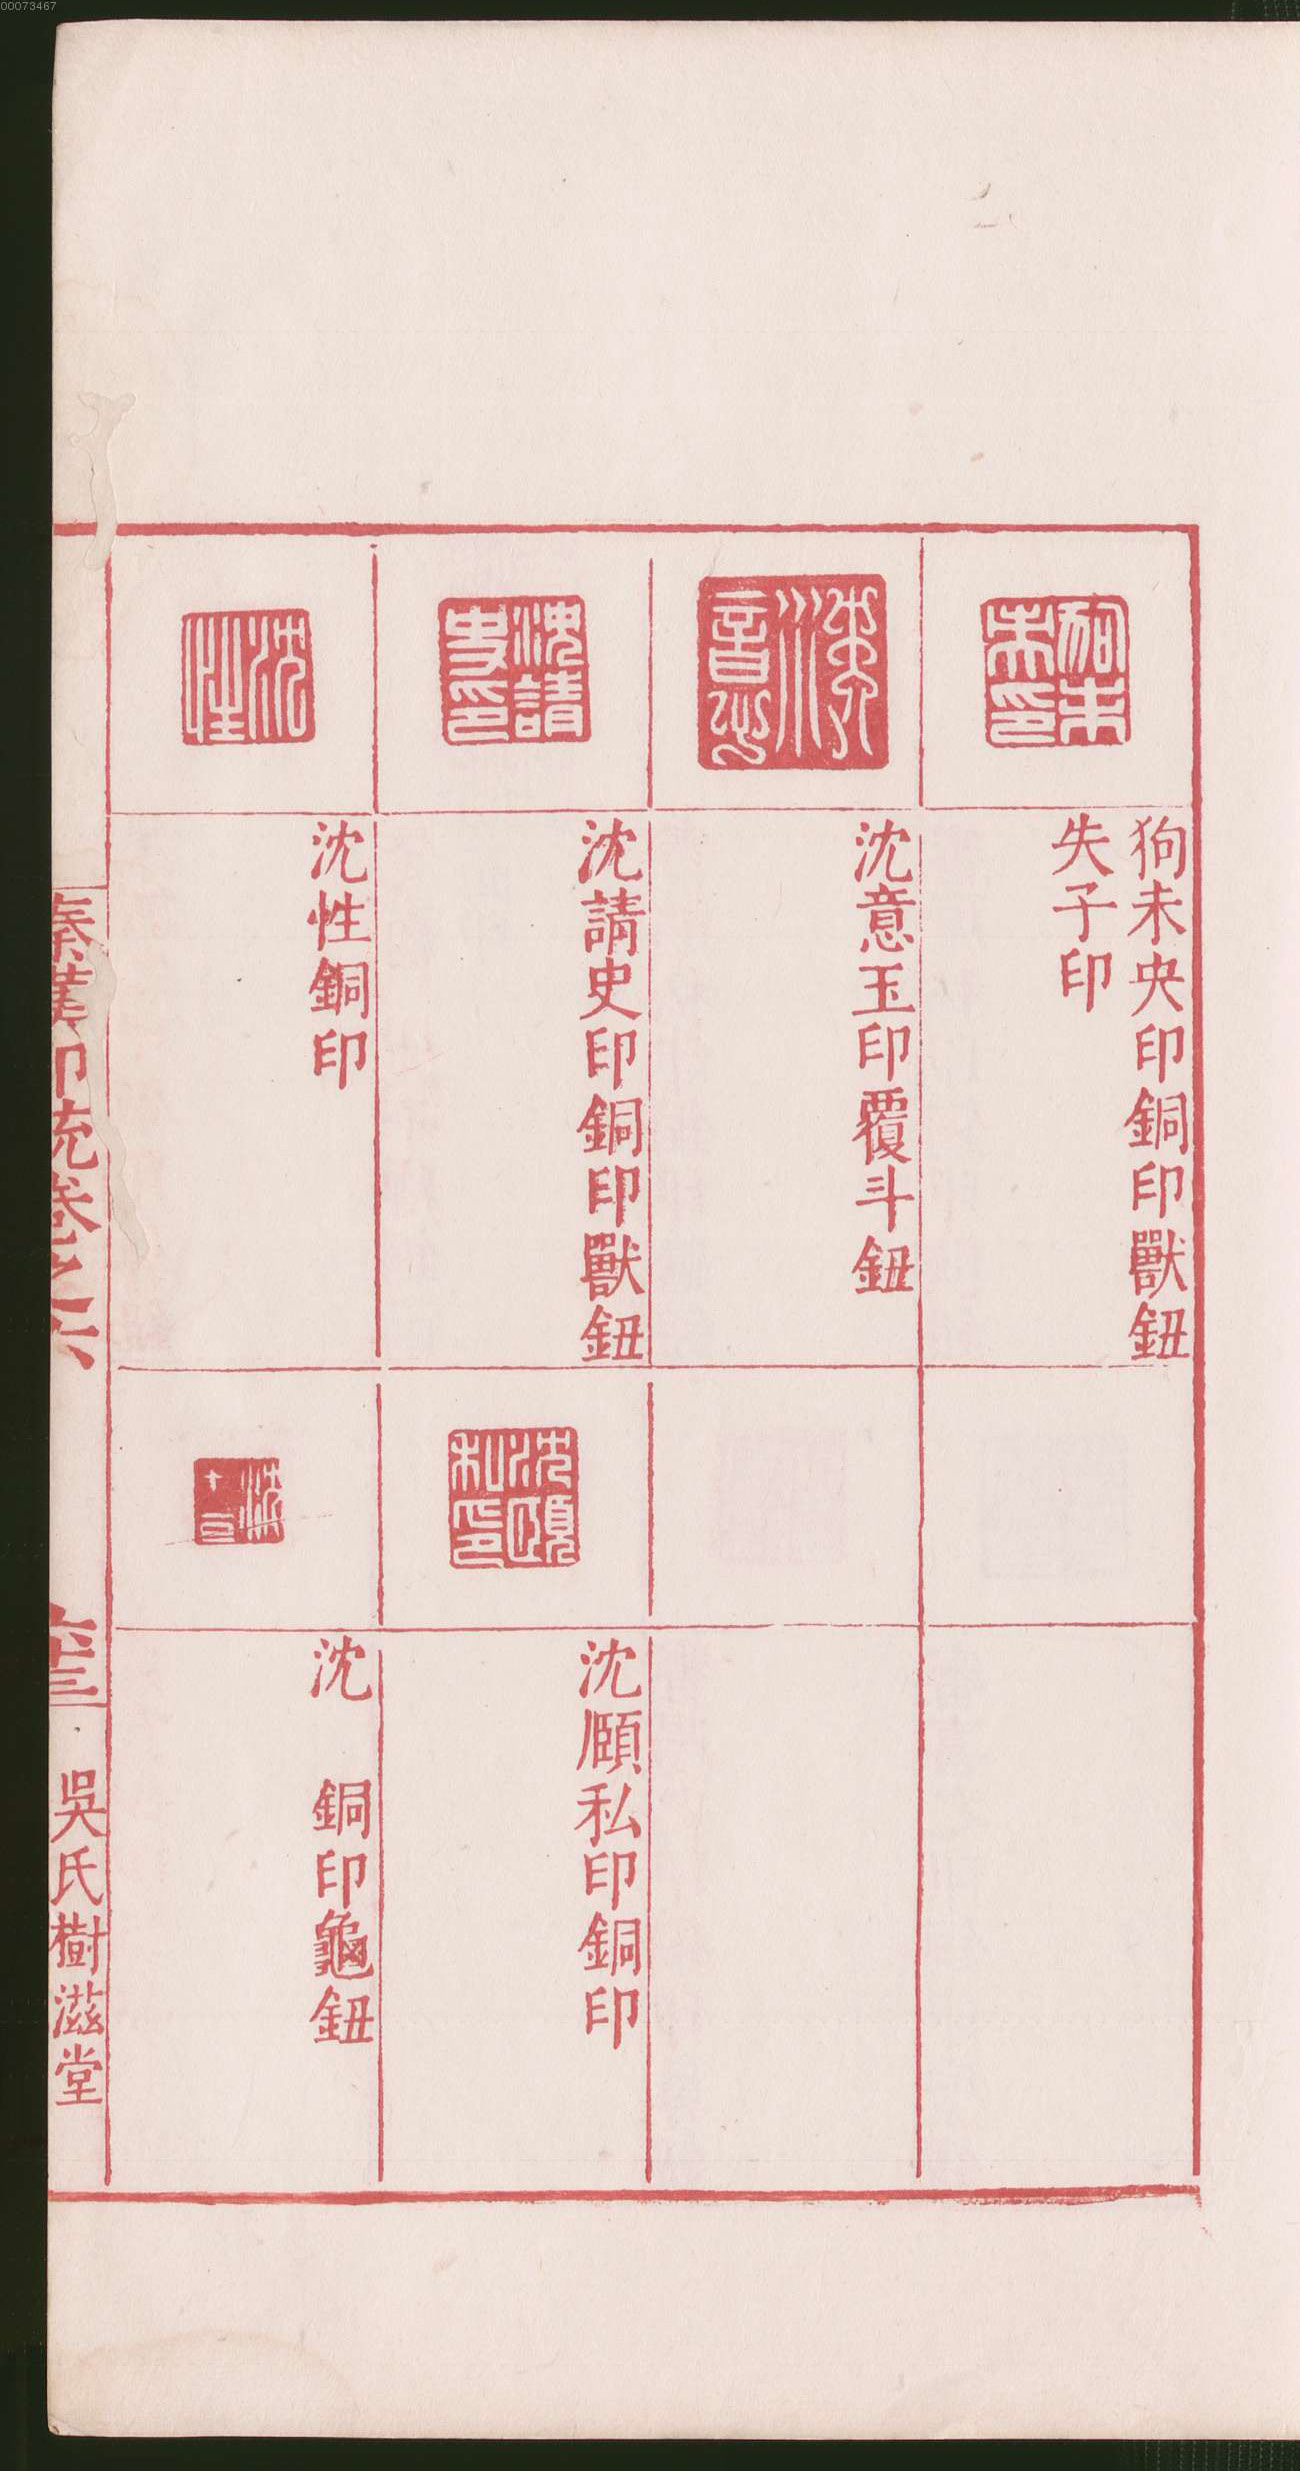 00073467
狗未央印銅印獸鈕
失子印
沈意玉印覆斗鈕
沈請史印銅印獸鈕
沈性銅印
沈頤私印銅印
沈 銅印龜鈕
秦漢印統卷之六
六十三
吳氏樹滋堂